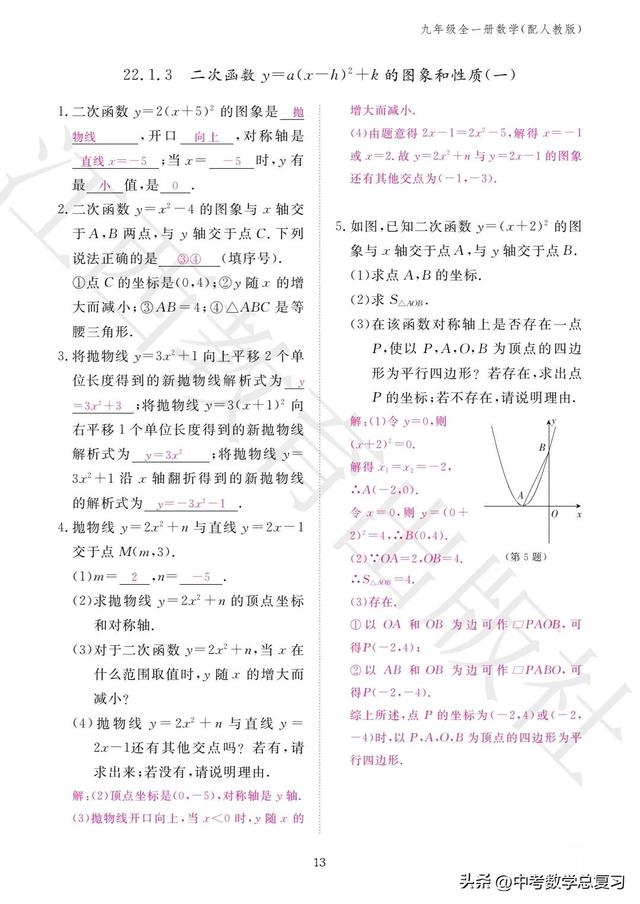 九年级全一册数学(配人教版)
22.1.3 二次函数 y=a(x-h)²+k 的图象和性质(一)
1.二次函数 y=2(x+5)² 的图象是 抛
物线 ,开口 向上 ,对称轴是
直线 x=-5 ;当 x= -5 时,y 有
最 小 值,是 0 .
2.二次函数 y=x²-4 的图象与 x 轴交
于 A,B 两点,与 y 轴交于点 C. 下列
说法正确的是 ③④ (填序号).
①点 C 的坐标是(0,4);②y 随 x 的增
大而减小;③AB=4;④△ABC 是等
腰三角形.
3.将抛物线 y=3x²+1 向上平移 2 个单
位长度得到的新抛物线解析式为 y
=3x²+3 ;将抛物线 y=3(x+1)² 向
右平移 1 个单位长度得到的新抛物线
解析式为 y=3x² ;将抛物线 y=
3x²+1 沿 x 轴翻折得到的新抛物线
的解析式为 y=-3x²-1 .
4.抛物线 y=2x²+n 与直线 y=2x-1
交于点 M(m,3).
(1)m= 2 ,n= -5 .
(2)求抛物线 y=2x²+n 的顶点坐标
和对称轴.
(3)对于二次函数 y=2x²+n,当 x 在
什么范围取值时,y 随 x 的增大而
减小?
(4)抛物线 y=2x²+n 与直线 y=
2x-1还有其他交点吗? 若有,请
求出来;若没有,请说明理由.
解:(2)顶点坐标是(0,-5),对称轴是 y 轴.
(3)抛物线开口向上,当 x<0 时,y 随 x 的
增大而减小.
(4)由题意得 2x-1=2x²-5,解得 x=-1
或 x=2. 故 y=2x²+n 与 y=2x-1 的图象
还有其他交点为(-1,-3).
5.如图,已知二次函数 y=(x+2)² 的图
象与 x 轴交于点 A,与 y 轴交于点 B.
(1)求点 A,B 的坐标.
(2)求 S△AOB.
(3)在该函数对称轴上是否存在一点
P,使以 P,A,O,B 为顶点的四边
形为平行四边形? 若存在,求出点
P 的坐标;若不存在,请说明理由.
解:(1)令 y=0,则
(x+2)²=0.
解得 x₁=x₂=-2,
∴A(-2,0).
令 x=0,则 y=(0+
2)²=4,∴B(0,4).
(2)∵OA=2,OB=4.
∴S△AOB=4.
y
B
A
O
x
(第 5 题)
(3)存在.
①以 OA 和 OB 为边可作▱PAOB,可
得P(-2,4);
②以 AB 和 OB 为边可作▱PABO,可
得P(-2,-4).
综上所述,点 P 的坐标为(-2,4)或(-2,
-4)时,以 P,A,O,B 为顶点的四边形为平
行四边形.
江西教育出版社
13
头条 @中考数学总复习